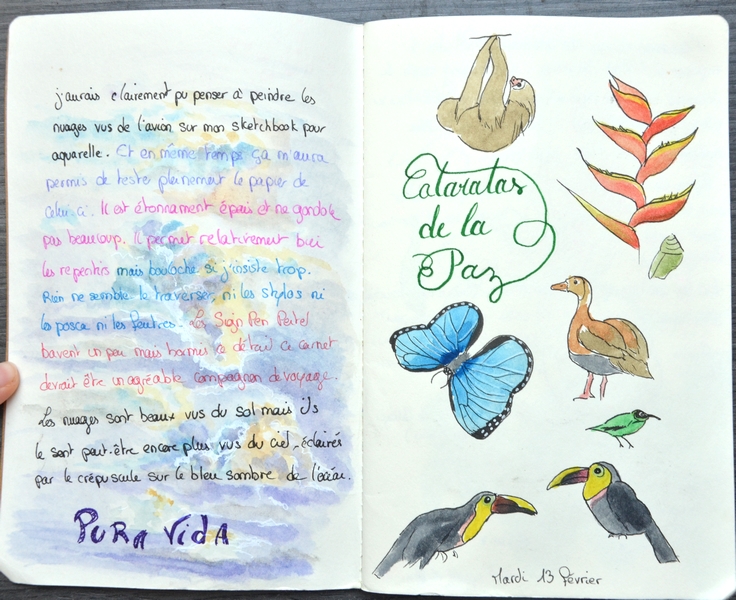 j'aurais clairement pu penser à peindre les
nuages vus de l'avion sur mon sketchbook pour
aquarelle. Et en même temps ça m'aura
permis de tester pleinement le papier de
celui-ci. Il est étonnament épais et ne gondole
pas beaucoup. Il permet relativement bien
les repentirs mais bouloche si j'insiste trop.
Rien ne semble le traverser, ni les stylos ni
les posca ni les feutres. Les Sign Pen Pentel
bavent un peu mais hormis ce détail ce carnet
devrait être un agréable compagnon de voyage.
Les nuages sont beaux vus du sol mais ils
le sont peut-être encore plus vus du ciel, éclairés
par le crépuscule sur le bleu sombre de l'océan.
PURA VIDA
Cataratas
de la
Paz
Mardi 13 février